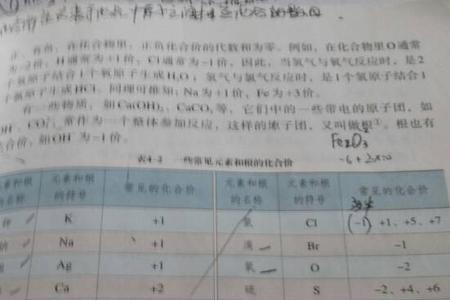 正、有负，在化合物里，正负化合价的代数和为零。例如，在化合物里O通常
为-2价，H通常为+1价，Cl通常为-1价，因此，当氢气与氧气反应时，是2
个氢原子结合1个氧原子生成H₂O；氢气与氯气反应时，是1个氢原子结合1
个氯原子生成HCl。同理可推知：Na为+1价，Fe为+3价。
有一些物质，如Ca(OH)₂、CaCO₃等，它们中的一些带电的原子团，如
OH⁻、CO₃²⁻，常作为一个整体参加反应，这样的原子团，又叫做根①。根也有
化合价，如OH⁻为-1价。
Fe₂O₃
-6+2x=0
表4-2 一些常见元素和根的化合价
元素和根的名称 元素和根的符号 常见的化合价 元素和根的名称 元素和根的符号 常见的化合价
钾 K +1 氯 Cl (-1) +1、+5、+7
钠 Na +1 溴 Br -1
银 Ag +1 氧 O -2
Ca +2 硫 S -2、+4、+6